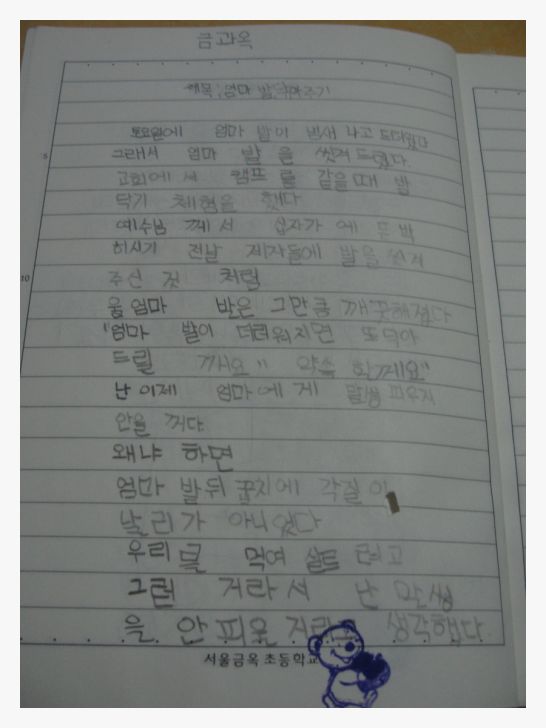 금과옥
제목:엄마 발닦아주기
토요일에 엄마 발이 냄새 나고 드더웠다
그래서 엄마 발 을 씻겨 드렸다.
교회에 서 캠프 를 갔을 때 발
닦기 체험을 했다
예수님 께서 십자가 에 못 박
히시기 전날 제자들에 발을 씻겨
주신 것 처럼
엄마 발은 그만큼 깨끗해졌다
"엄마 발이 더러워지면 또 닦아
드릴 께요" 약속 할께요"
난 이제 엄마에게 말썽 피우지
안을 꺼다.
왜냐 하면
엄마 발뒤 꿈치에 각질 이
날리가 아니었다
우리를 먹여 살트 려고
그런 거라서 난 말썽
을 안피울 거라고 생각했다
서울금옥초등학교